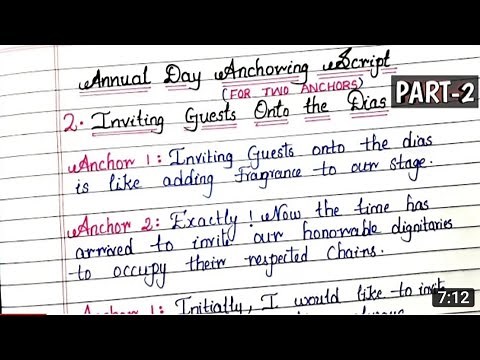 Annual Day Anchoring Script
(FOR TWO ANCHORS)
PART-2
2. Inviting Guests Onto the Dias
Anchor 1: Inviting Guests onto the dias
is like adding fragrance to our stage.
Anchor 2: Exactly! Now the time has
arrived to invite our honorable dignitaries
to occupy their respected Chairs.
Anchor 1: Initially, I would like to invit
7:12